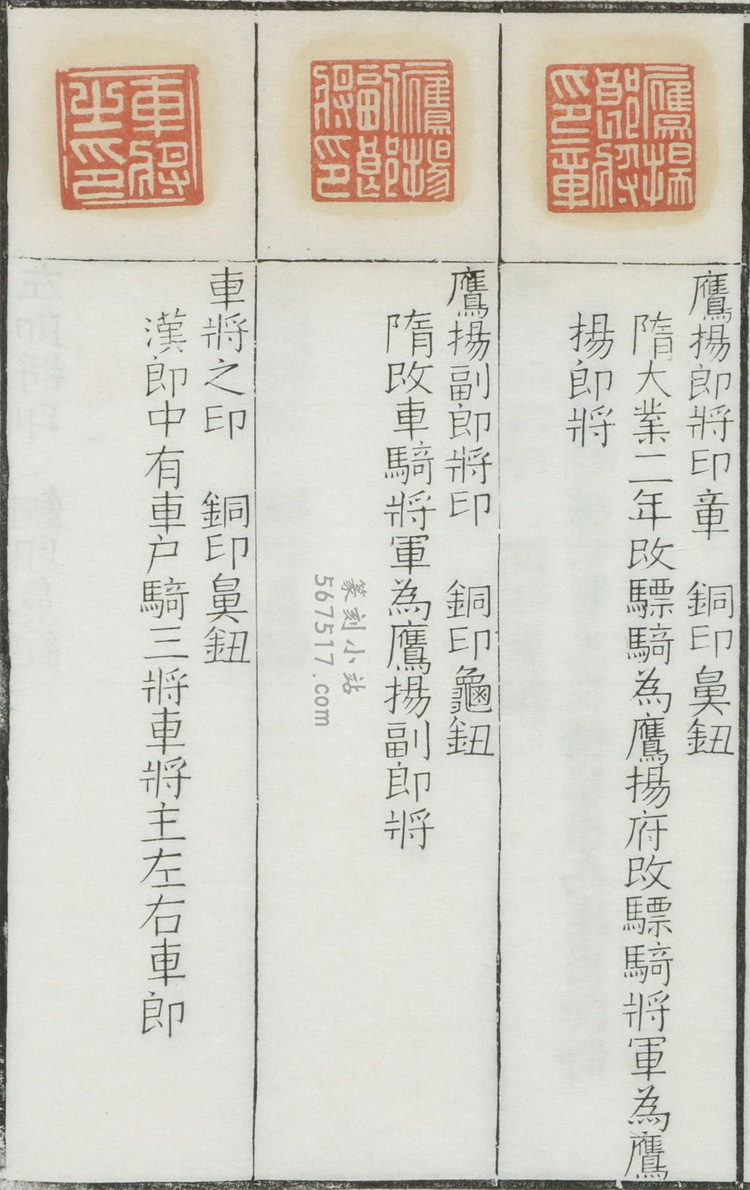 鷹揚
郎將
印章
鷹揚郎將印章　銅印鼻鈕
隋大業二年改驃騎為鷹揚府改驃騎將軍為鷹
揚郎將
鷹揚
副郎
將印
鷹揚副郎將印　銅印龜鈕
隋改車騎將軍為鷹揚副郎將
車將
之印
車將之印　銅印鼻鈕
漢郎中有車戶騎三將車將主左右車郎
篆刻小站
567517.com